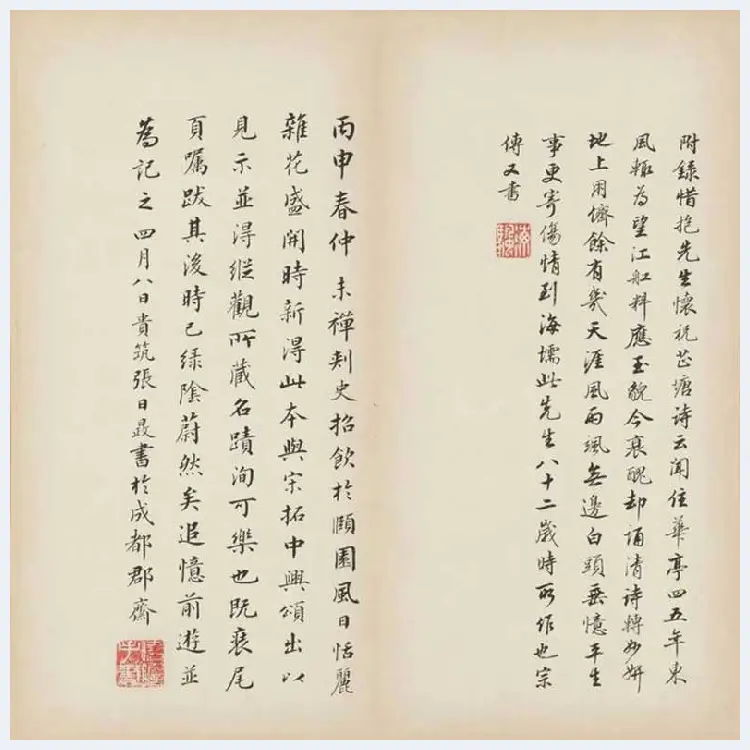 附錄惜抱先生懷祝芷塘诗云闻住華亭四五年東
風輙為望江船料應玉貌今衰醜却誦清诗轉妙妍
地上朋儕餘有幾天涯風雨颯無邊白頭垂憶平生
事更寄傷情到海壖此先生八十二歲時所作也宗
傅又書
丙申春仲未禪刺史招飲於頤園風日恬麗
雜花盛開時新得此本與宋拓中興頌出以
見示並得縱觀所藏名蹟洵可樂也既裒尾
頁嘱跋其後時已绿陰蔚然矣追憶前遊並
為記之四月八日貴筑張日晸書於成都郡齋